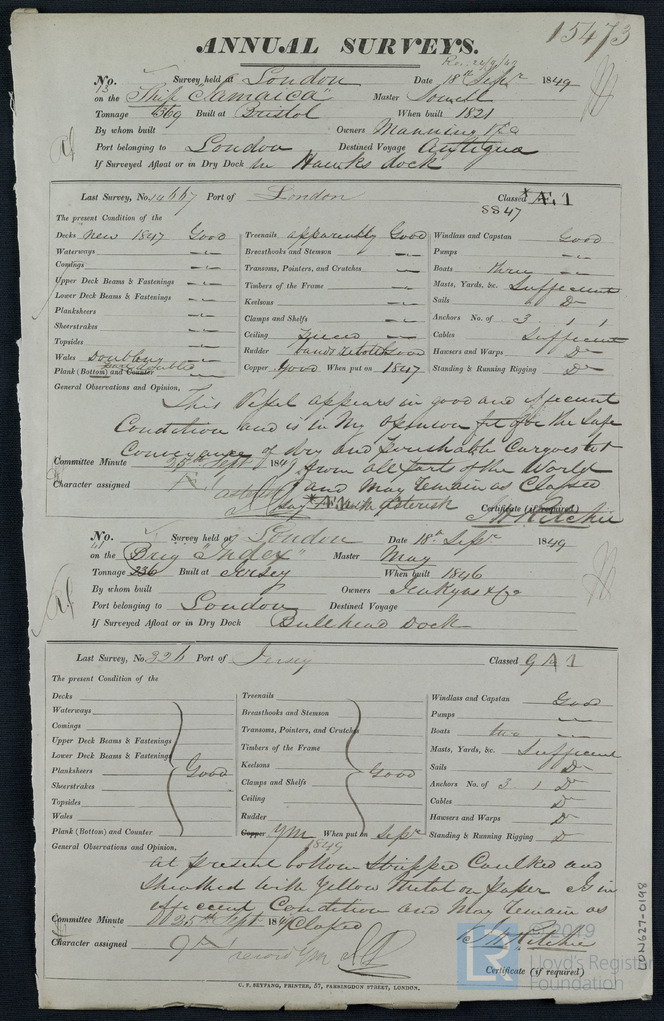 15473
ANNUAL SURVEYS.
No. 13 Survey held at London Date 18th Septr 1849
on the Ship "Jamaica" Master
Tonnage 369 Built at Bristol When built 1821
By whom built Owners Manning &Co
Port belonging to London Destined Voyage Antigua
If Surveyed Afloat or in Dry Dock in Hawks dock
Last Survey, No. 14667 Port of London Classed *Æ.1
8847
The present Condition of the
Decks new 1847 Good
Waterways
Comings
Upper Deck Beams & Fastenings
Lower Deck Beams & Fastenings
Planksheers
Sheerstrakes
Topsides
Wales Doubling
Plank (Bottom) and Counter
Treenails apparently Good
Breasthooks and Stemson
Transoms, Pointers, and Crutches
Timbers of the Frame
Keelsons
Clamps and Shelfs
Ceiling
Rudder Good
Copper Good When put on 1847
Windlass and Capstan Good
Pumps
Boats three
Masts, Yards, &c. Sufficient
Sails Do
Anchors No. of 3 1 1
Cables Sufficient
Hawsers and Warps Do
Standing & Running Rigging Do
General Observations and Opinion,
This Vessel appears in good and efficient
Condition and is in My opinion fit for the Safe
Conveyance of Dry and Perishable Cargoes to &
from all parts of the World
Committee Minute 25th Septr 1849
and May Remain as Classed
Character assigned
Say *Æ1 with Asterisk
Certificate (if required)
J H Ritchie
No. 41 Survey held at London Date 18th Septr 1849
on the Brig "Index" Master May
Tonnage 236 Built at Jersey When built 1846
By whom built Owners Jenkyns & Co
Port belonging to London Destined Voyage
If Surveyed Afloat or in Dry Dock Bullhead Dock
Last Survey, No. 326 Port of Jersey Classed 9 A 1
The present Condition of the
Decks
Waterways
Comings
Upper Deck Beams & Fastenings
Lower Deck Beams & Fastenings
Planksheers Good
Sheerstrakes
Topsides
Wales
Plank (Bottom) and Counter
Treenails
Breasthooks and Stemson
Transoms, Pointers, and Crutches
Timbers of the Frame
Keelsons Good
Clamps and Shelfs
Ceiling
Rudder
Copper YM When put on Septr
1849
Windlass and Capstan Good
Pumps
Boats two
Masts, Yards, &c. Sufficient
Sails Do
Anchors No. of 3 1 Do
Cables Do
Hawsers and Warps Do
Standing & Running Rigging Do
General Observations and Opinion,
at present bottom stripped Caulked and
Sheathed with Yellow Metal on paper Is in
efficient Condition and May Remain as
Committee Minute 25th Septr 1849 Classed
J H Ritchie
Character assigned 9 A 1
record YM
Certificate (if required)
C. F. SEYFANG, PRINTER, 57, FARRINGDON STREET, LONDON.
LON627-0198
LR
© 2019
Lloyd's Register
Foundation